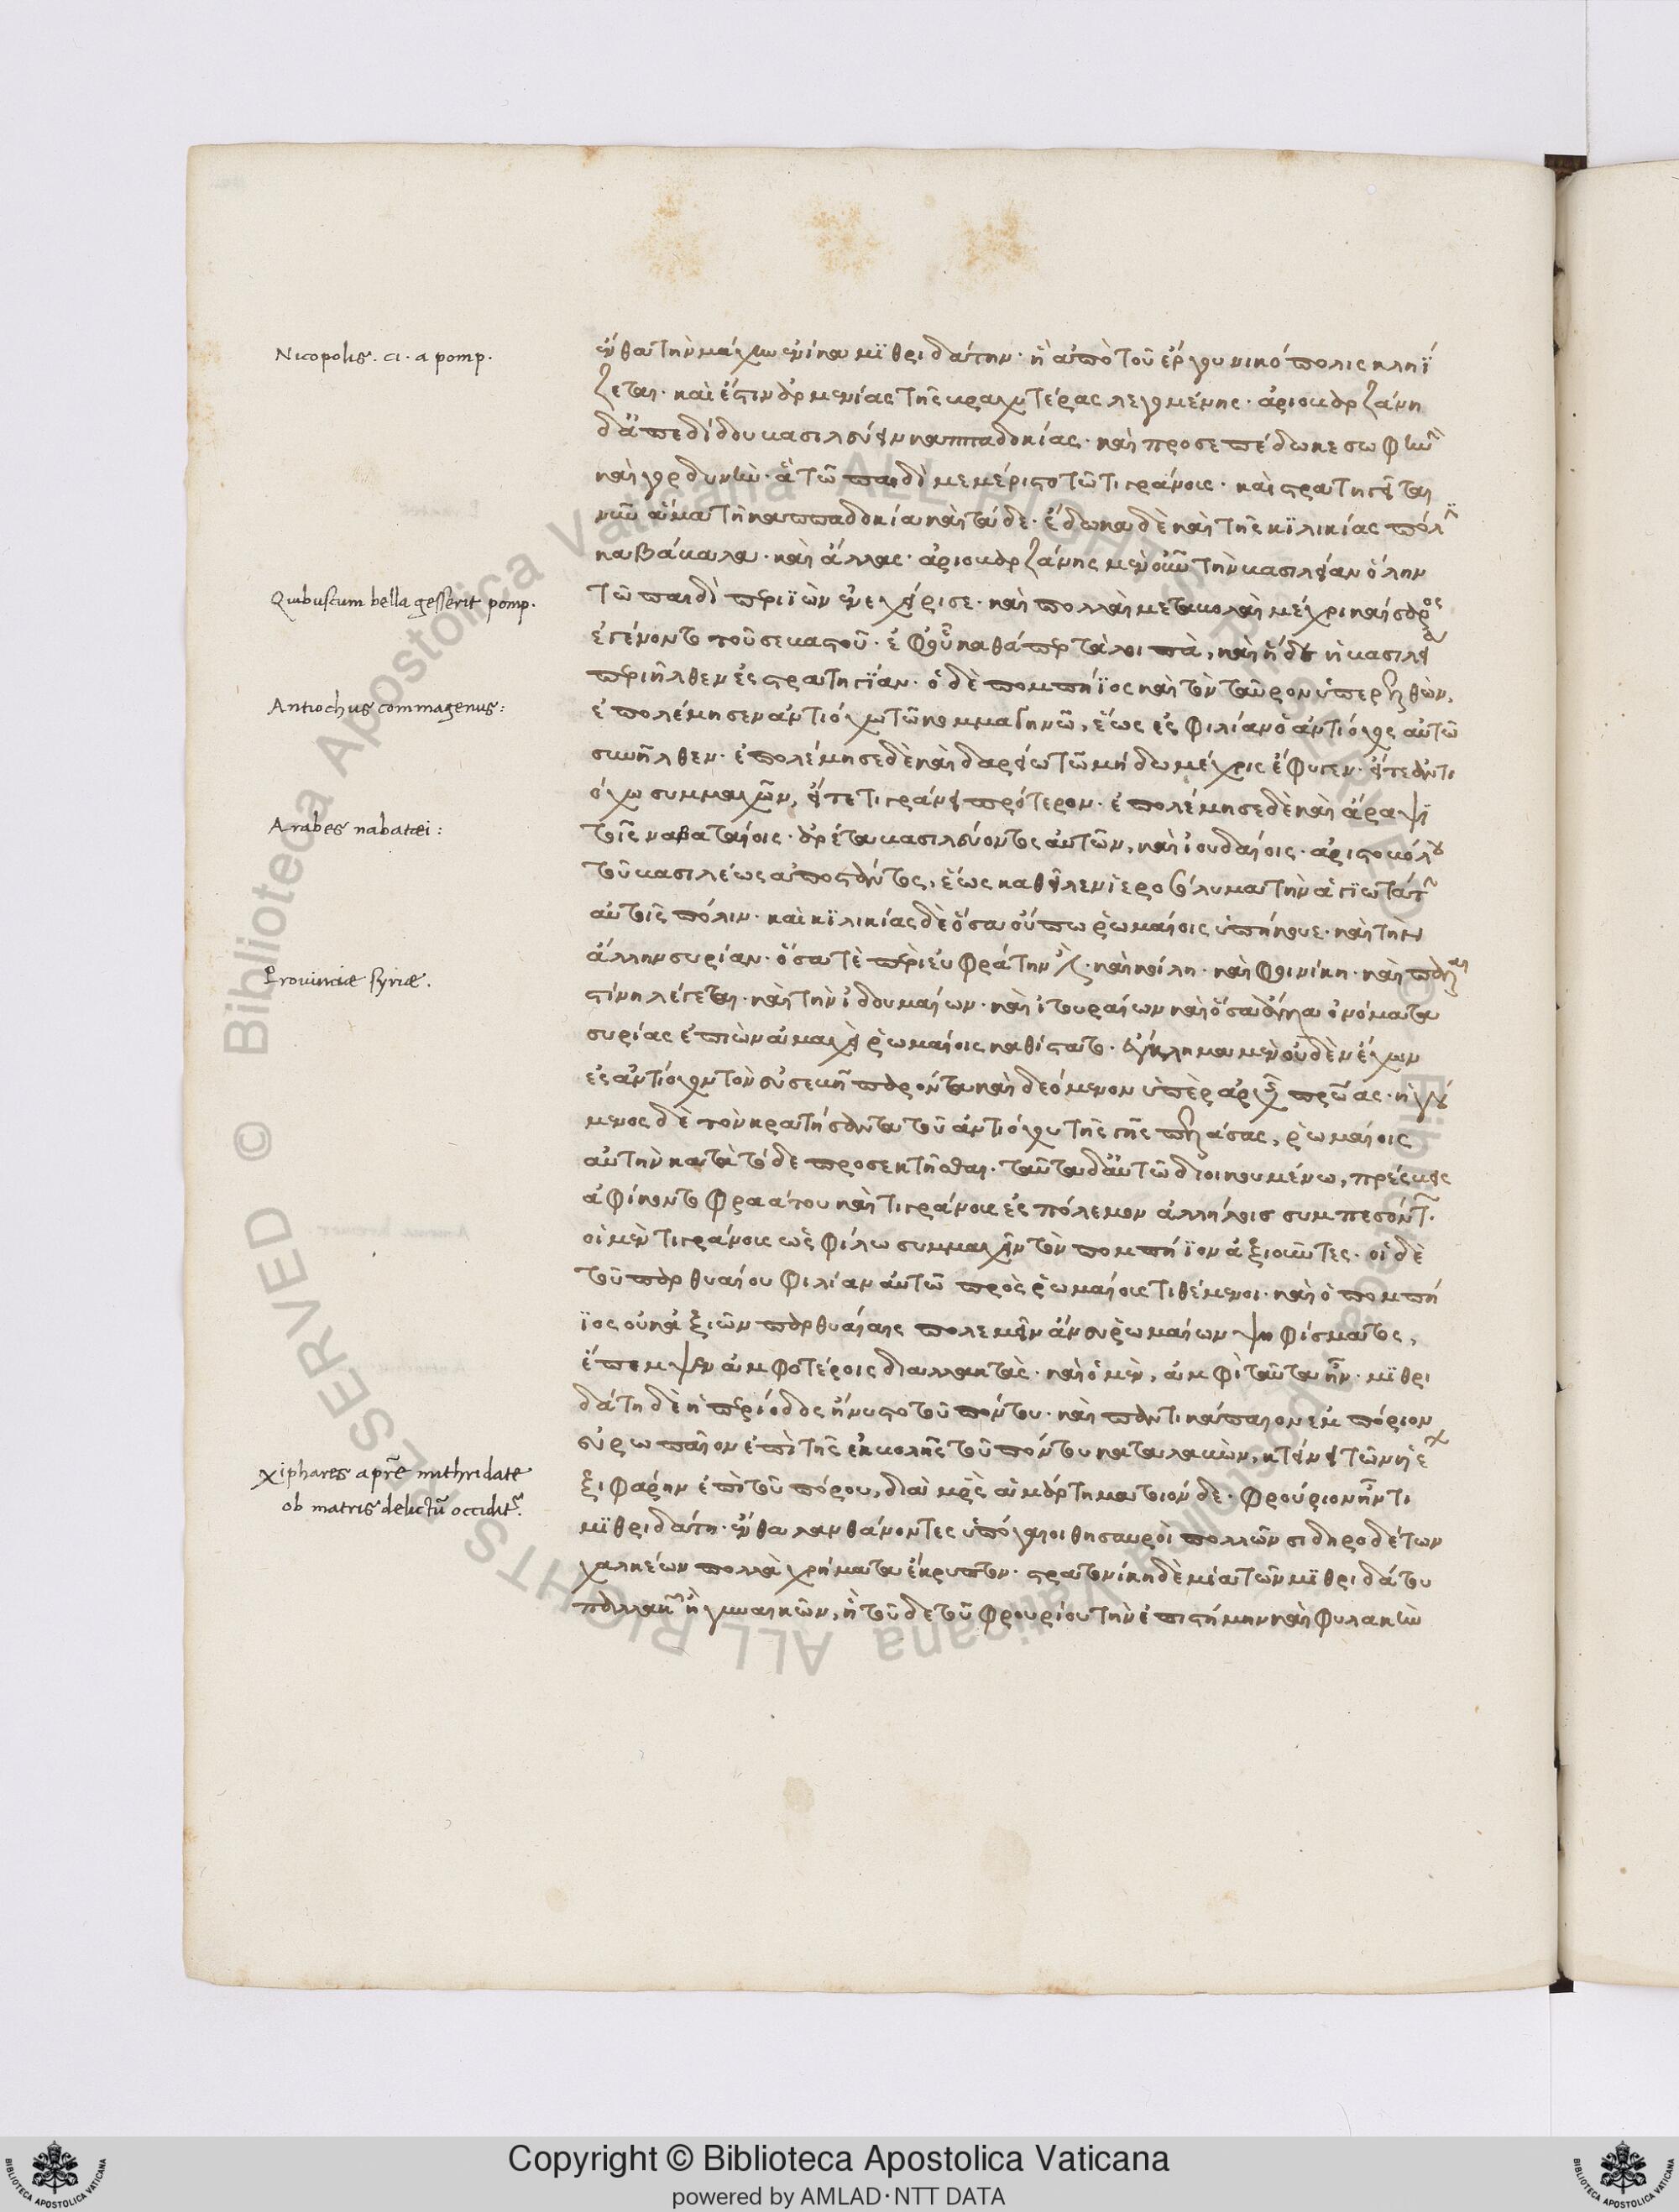 Nicopolis. ci. a pomp.
Quibuscum bella gesserit pomp.
Antiochus commagenus:
Arabes nabatæi:
Prouinciæ syriæ.
Xiphares a pr̃e mithridate
ob matris delictũ occidit̃.
ἔνθα τὴν μάχην ἐνίκα μϊθριδάτην· ἣ ἀπὸ τοῦ ἔργου νικόπολις κληΐ
ζεται· καὶ ἔστιν ἀρμενίας τῆς βραχυτέρας λεγομένης· ἀριοβαρζάνη
δ' ἀπεδίδου βασιλεύειν καππαδοκίας· καὶ προσεπέδωκε σωφηνὴ
καὶ γορδυνὴν· ἃ τῶ παιδὶ μεμέριστο τῶ τιγράνους· καὶ στρατηγεῖται
νῦν ἅμα τῆ καππαδοκία καὶ τάδε· ἔδωκα δὲ καὶ τῆς κϊλικίας πόλ
καβάκαλα· καὶ ἄλλας· ἀριοβαρζάνης μὲν οὖν τὴν βασιλείαν ὅλην
τῶ παιδὶ περιϊὼν ἐνεχείρισε· καὶ πολλαὶ μεταβολαὶ μέχρι καίσαρος
ἐγένοντο τοῦ σεβαστοῦ· ἐφ' οὗ καθάπερ τὰ λοιπὰ, καὶ ἥδε ἡ βασιλεία
περιῆλθεν ἐς στρατηγίαν· ὁ δὲ πομπήϊος καὶ τὸν ταῦρον ὑπερελθὼν,
ἐπολέμησεν ἀντιόχω τῶ κομμαγηνῶ, ἕως ἐς φιλίαν ὁ ἀντίοχος αὐτῶ
συνῆλθεν· ἐπολέμησε δὲ καὶ δαρείω τῶ μήδω μέχρις ἔφυγεν· εἴτε ἀντι
όχω συμμαχῶν, εἴτε τιγράνει πρότερον· ἐπολέμησε δὲ καὶ ἄραψϊ
τοῖς ναβαταίοις· ἀρέτα βασιλεύοντος αὐτῶν, καὶ ἰουδαίοις· ἀριστοβόλου
τοῦ βασιλέως ἀποστάντος, ἕως καθεῖλεν ἱεροσόλυμα τὴν ἁγϊωτάτ
αὐτοῖς πόλιν· καὶ κϊλικίας δὲ ὅσα οὔπω ῥωμαίοις ὑπήκουε· καὶ τὴν
ἄλλην συρίαν· ὅσα τὲ περὶ εὐφράτην ἐστὶ· καὶ κοίλη· καὶ φοινίκη· καὶ παλαι
στίνη λέγεται· καὶ τὴν ἰδουμαίων· καὶ ἰτουραίων καὶ ὅσα ἄλλα ὀνόματα
συρίας ἐπιὼν ἀμαχεὶ ῥωμαίοις καθίστατο· ἔγκλημα μὲν οὐδὲν ἔχων
ἐς ἀντίοχον τὸν εὐσεβῆ παρόντα καὶ δεόμενον ὑπὲρ ἀρχῆς πρώας· ἡγού
μενος δὲ τὸν κρατήσαντα τοῦ ἀντιόχου τῆς γῆς ἀπελάσας, ῥωμαίοις
αὐτὴν κατὰ τόδε προσεκτῆσθαι· ταῦτα δ' αὐτῶ διοικουμένω, πρέσβεις
ἀφίκοντο φραάτου καὶ τιγράνους ἐς πόλεμον ἀλλήλοισ συμπεσόντ.
οἱ μὲν τιγράνους ὡς φίλω συμμαχεῖν τὸν πομπήϊον ἀξιοῦντες· οἱ δὲ
τοῦ παρθυαίου φιλίαν αὐτῶ πρὸς ῥωμαίους τιθέμενοι· καὶ ὁ πομπή
ϊος οὐκ ἀξιῶν παρθυαίοις πολεμεῖν ἄνευ ῥωμαίων ψηφίσματος,
ἔπεμψεν ἀμφοτέροις διαλλακτὰς· καὶ ὁ μὲν, ἀμφὶ ταῦτα ἦν· μϊθρι
δάτη δὲ ἡ περίοδος ἤνυστο τοῦ πόντου· καὶ παντικάπαιον ἐμπόριον
εὐρωπαῖον ἐπὶ τῆς ἐκβολῆς τοῦ πόντου καταλαβὼν, κτείνει τῶν υἱέ
ξιφάρην ἐπὶ τοῦ πόρου, διὰ μρ̃ὸς ἁμάρτημα τοιόνδε· φρούριον ἦν τι
μϊθριδάτη· ἔνθα λανθάνοντες ὑπόγαιοι θησαυροὶ πολλῶν σιδηροδέτων
χαλκέων πολλὰ χρήματα ἔκρυπτον· στρατονίκη δὲ μία τῶν μϊθριδάτου
παλλακῶν ἢ γυναικῶν, ἣ τοῦδε τοῦ φρουρίου τὴν ἐπιστήμην καὶ φυλακὴν